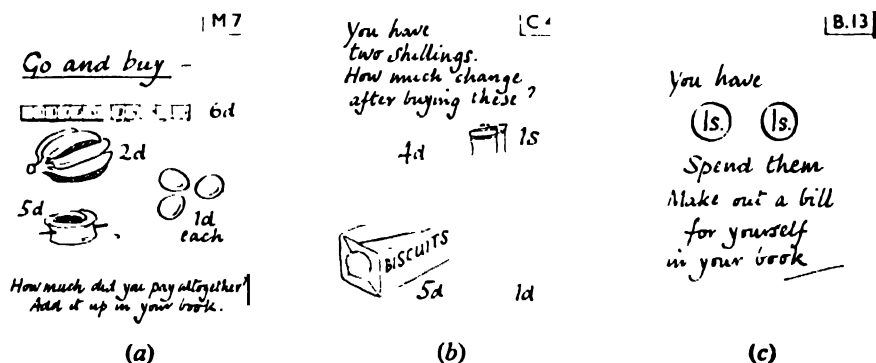 M 7
Go and buy -
6d
2d
5d
1d
each
How much did you pay altogether?
Add it up in your book.
(a)
C 4
You have
two shillings.
How much change
after buying these?
4d
1s
BISCUITS
5d
1d
(b)
B.13
You have
1s. 1s.
Spend them
Make out a bill
for yourself
in your book
(c)